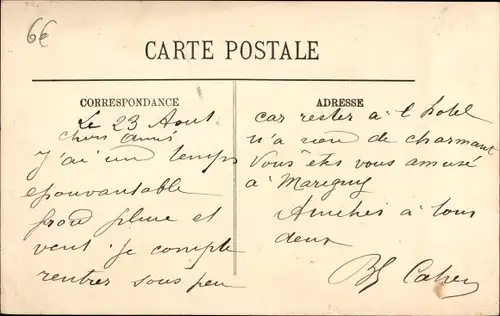 6€
CARTE POSTALE
CORRESPONDANCE
Le 23 Aout
chers amis
j'ai un temps
epouvantable
froid pluie et
vent je compte
rentrer sous peu
ADRESSE
car rester à l hotel
n'a rien de charmant
Vous êtes vous amusé
à Marigny
Amitiés à tous
deux
Cahen